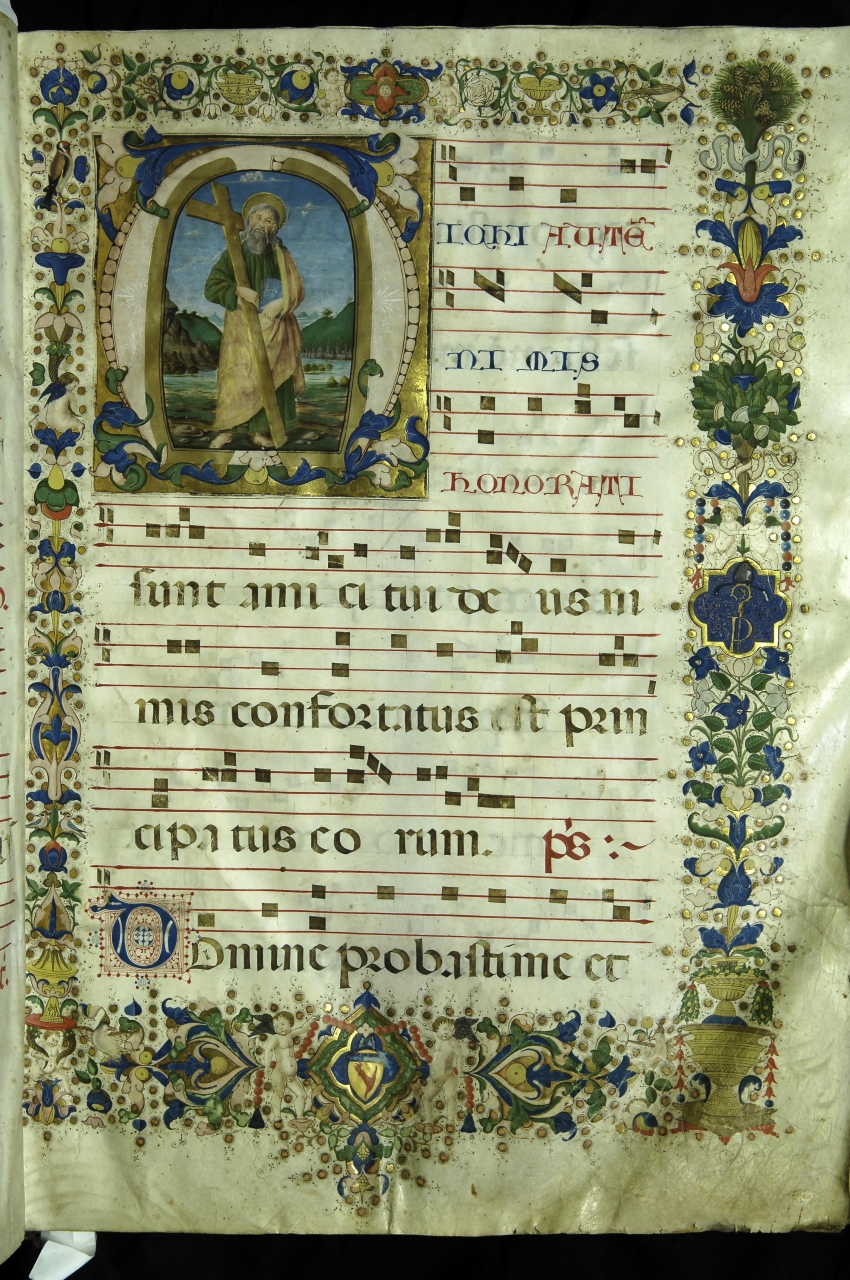 MIChI AUTE̅
NI MIS
hONORATI
sunt ami ci tui de us ni
mis confortatus est prin
cipa tus co rum. p̄s :~
Domine probasti me et